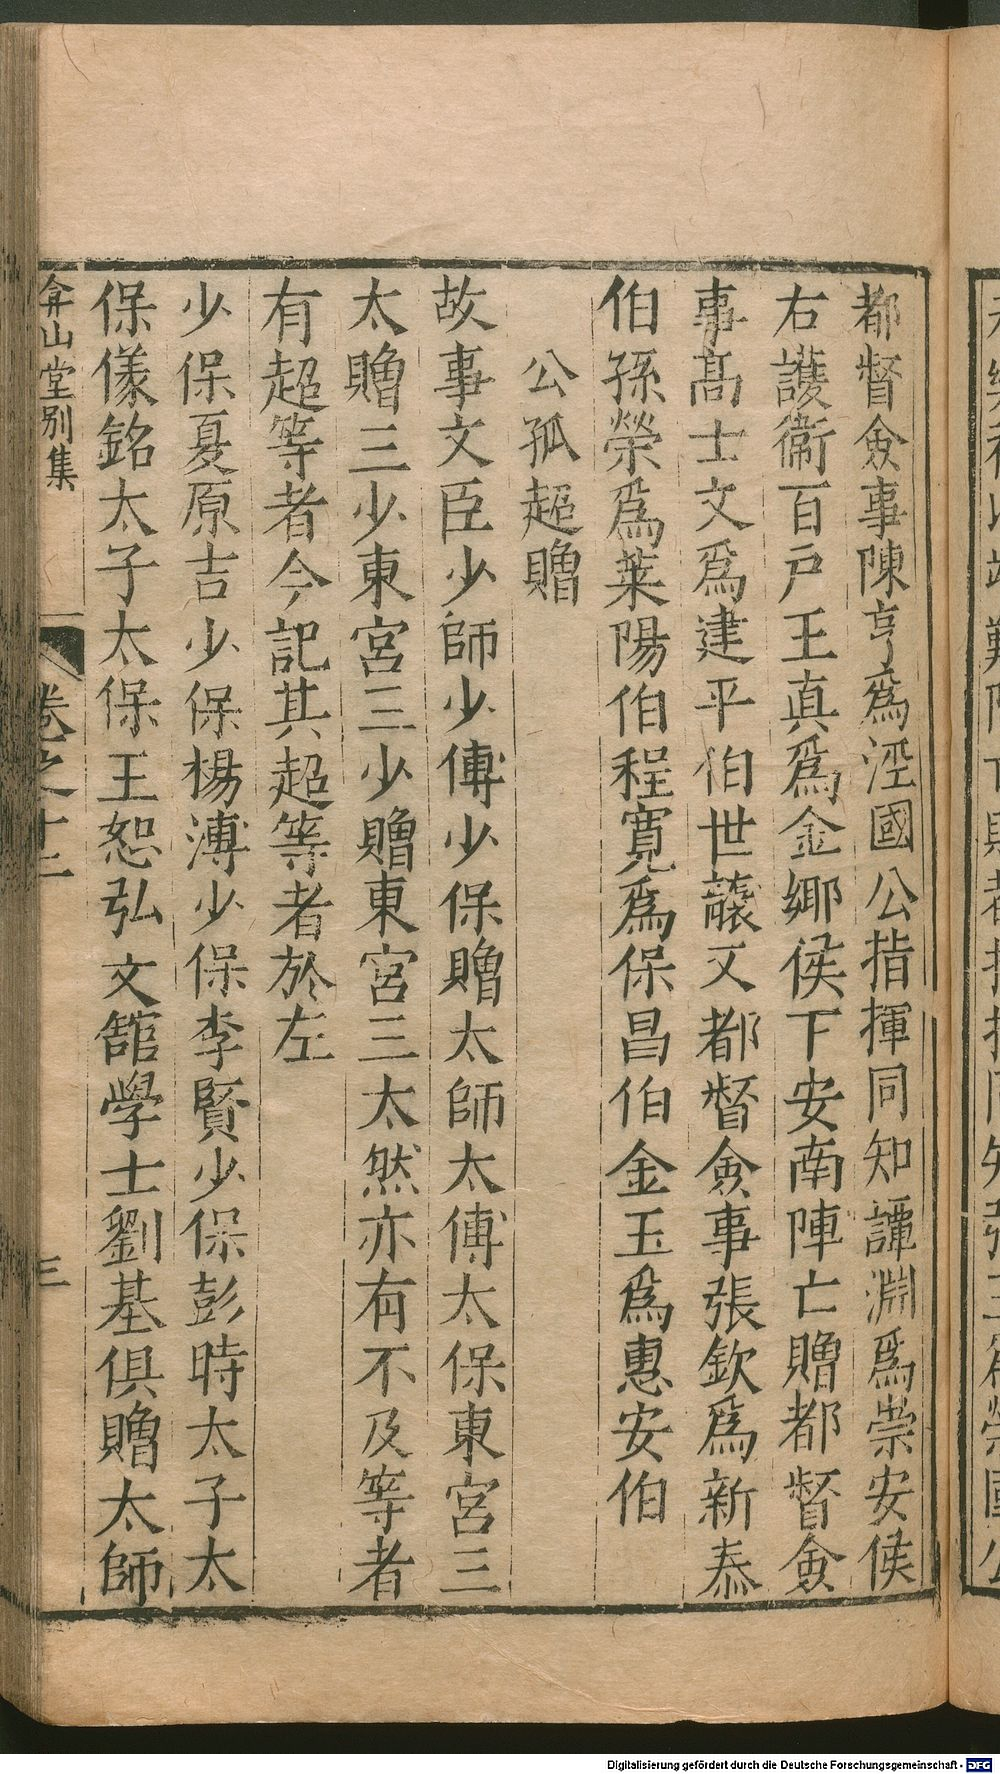 都督僉事陳亨為涇國公指揮同知譚淵爲崇安侯
右護衞百戸王真爲金鄉侯下安南陣亡贈都督僉
事高士文爲建平伯世襲又都督僉事張欽爲新泰
伯孫榮爲萊陽伯程寬爲保昌伯金玉爲惠安伯
公孤超贈
故事文臣少師少傅少保贈太師太傅太保東宮三
太贈三少東宮三少贈東宮三太然亦有不及等者
有超等者今記其超等者於左
少保夏原吉少保楊溥少保李賢少保彭時太子太
保儀銘太子太保王恕弘文館學士劉基俱贈太師
弇山堂別集
卷之十二
三
Digitalisierung gefördert durch die Deutsche Forschungsgemeinschaft - DFG